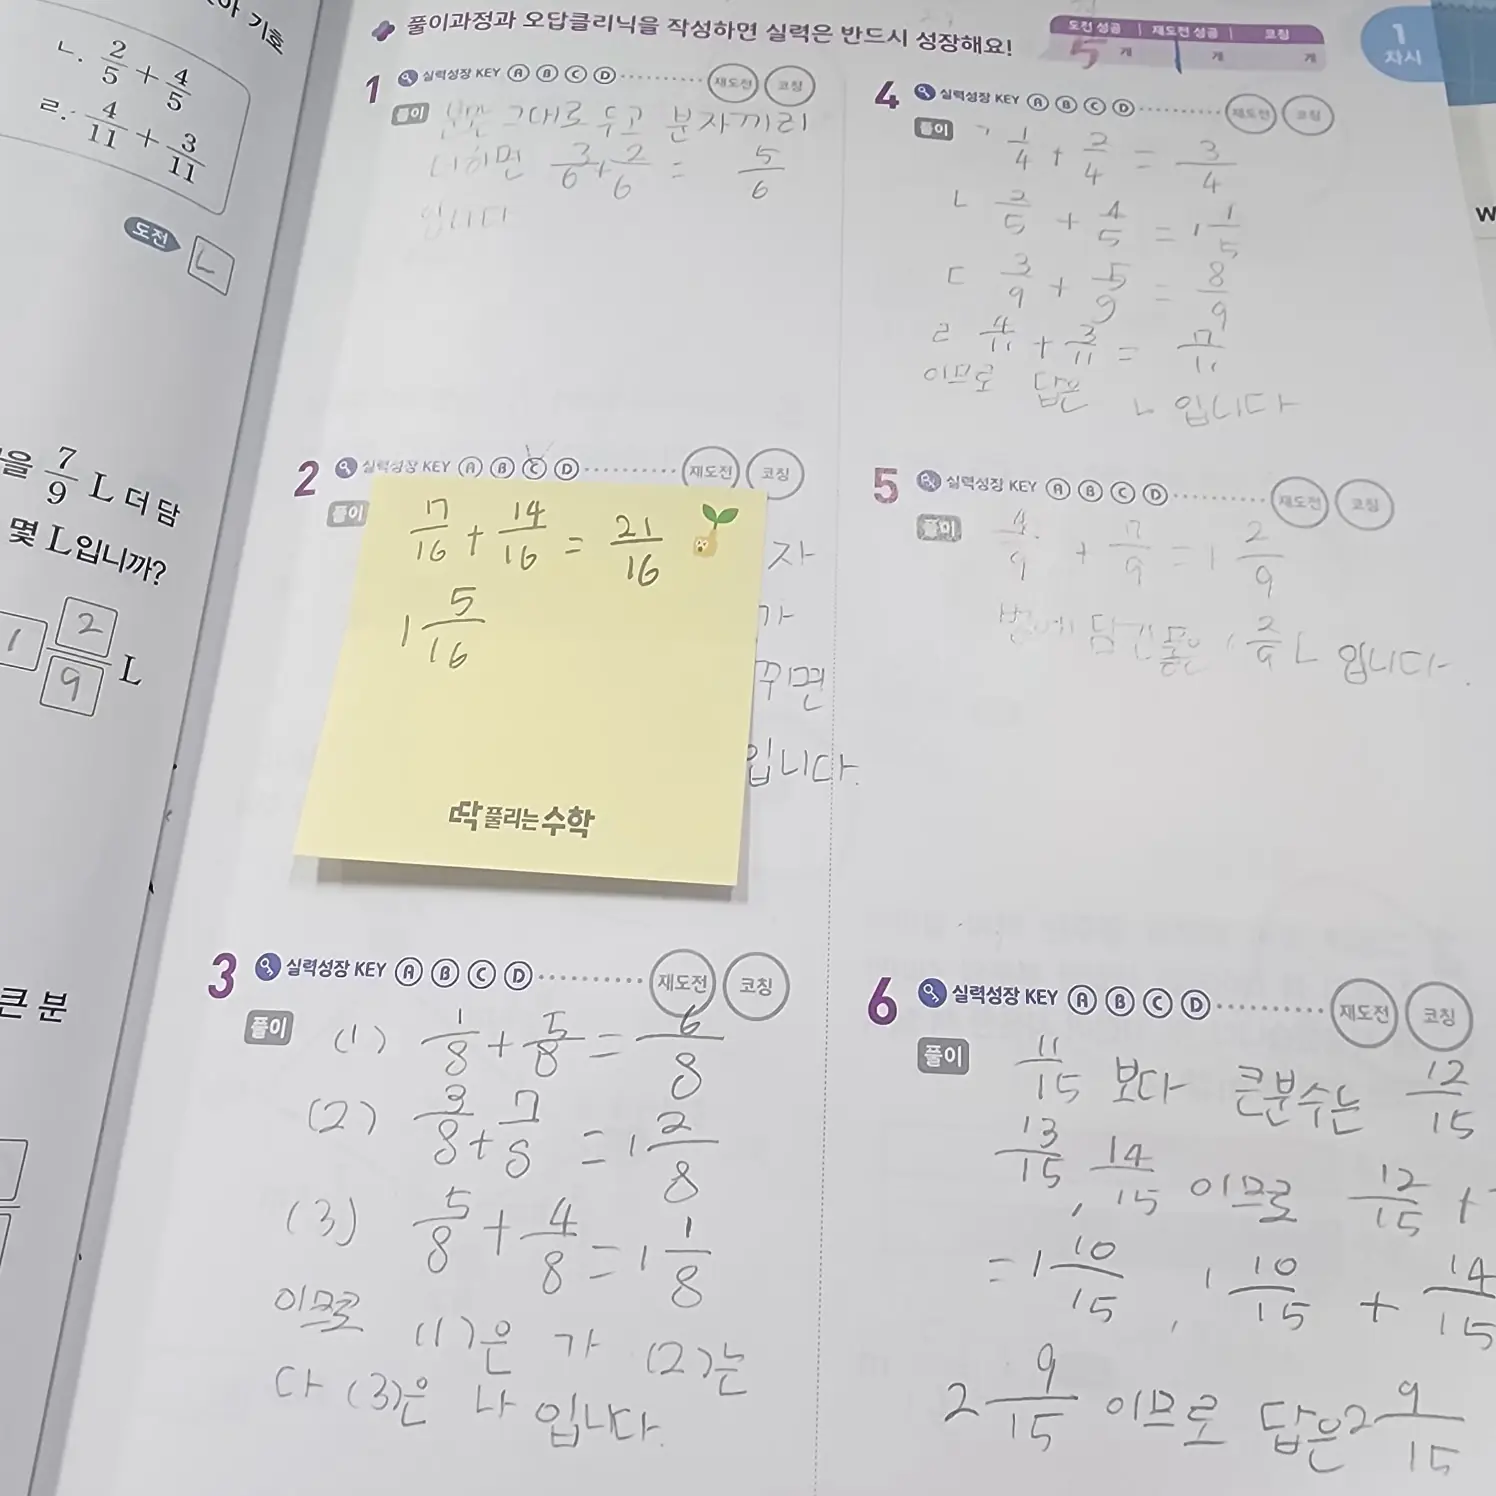 아 기호
ㄴ. 2/5 + 4/5
ㄹ. 4/11 + 3/11
도전 ㄴ
을 7/9 L 더 담
몇 L입니까?
1 2/9 L
큰 분
풀이과정과 오답클리닉을 작성하면 실력은 반드시 성장해요!
도전 성공 | 재도전 성공 | 코칭
5 개 1 개 개
1
차시
1 실력성장 KEY A B C D 재도전 코칭
풀이 그대로 두고 분자끼리
3/6 + 2/6 = 5/6
입니다
2 실력성장 KEY A B C D 재도전 코칭
풀이
17/16 + 14/16 = 21/16
1 5/16
자
가
꾸면
입니다.
딱 풀리는 수학
3 실력성장 KEY A B C D 재도전 코칭
풀이 (1) 1/8 + 5/8 = 6/8
(2) 3/8 + 7/8 = 1 2/8
(3) 5/8 + 4/8 = 1 1/8
이므로 (1)은 가 (2)는
다 (3)은 나 입니다.
4 실력성장 KEY A B C D 재도전 코칭
풀이 ㄱ 1/4 + 2/4 = 3/4
ㄴ 2/5 + 4/5 = 1 1/5
ㄷ 3/9 + 5/9 = 8/9
ㄹ 4/11 + 3/11 = 7/11
이므로 답은 ㄴ 입니다
5 실력성장 KEY A B C D 재도전 코칭
풀이 4/9 + 7/9 = 1 2/9
담긴 물은 1 2/9 L 입니다.
6 실력성장 KEY A B C D 재도전 코칭
풀이 11/15 보다 큰분수는 12/15
13/15, 14/15 이므로 12/15 +
= 1 10/15, 1 10/15 + 14/15
2 9/15 이므로 답은 2 9/15
W